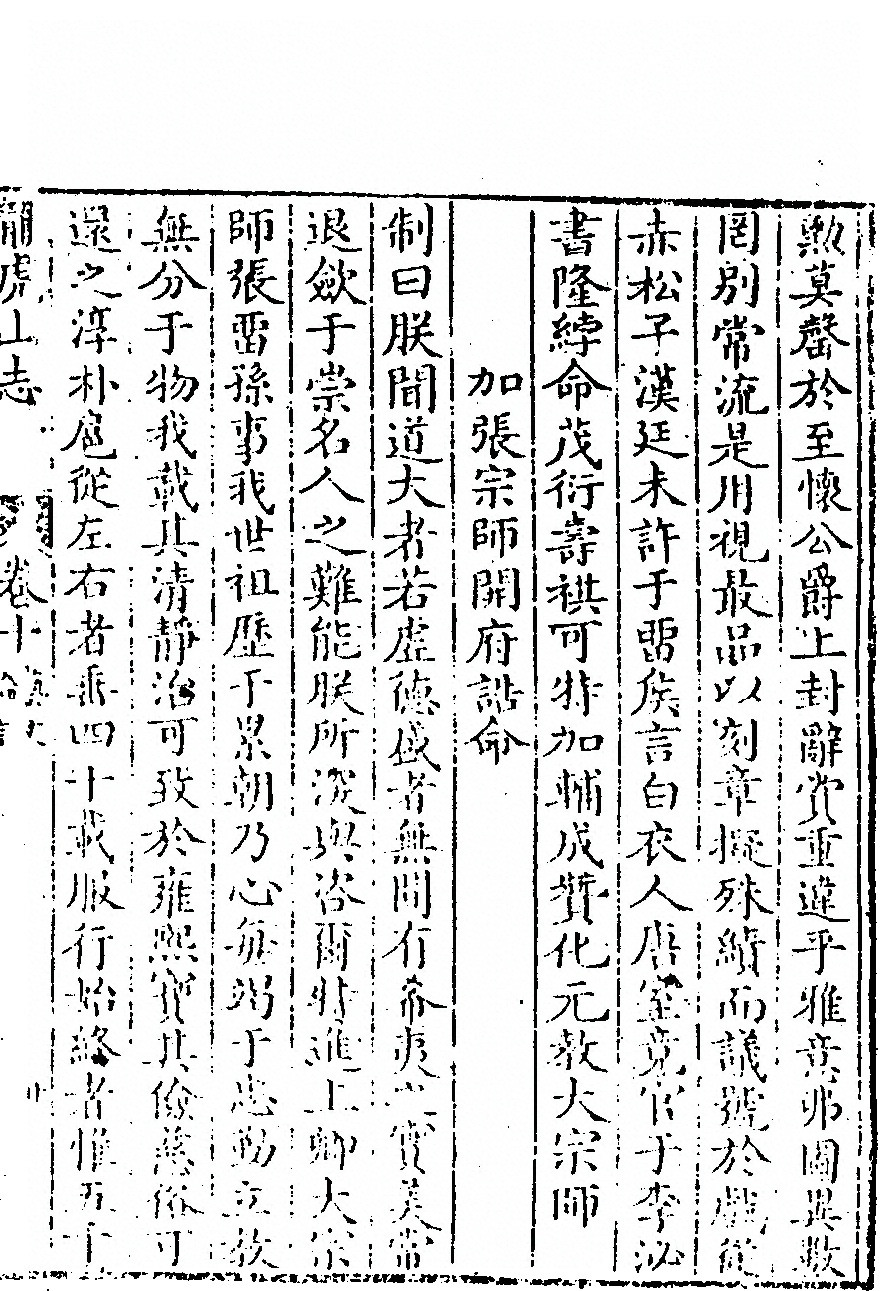 勲莫罄於至懷公爵上封辭賞重違乎雅意弗圖異數
罔別常流是用視最品以刻章擬殊績而議號於戲從
赤松子漢廷未許于畱侯言白衣人唐室竟官于李泌
書隆綍命茂衍壽祺可特加輔成贊化元教大宗師
加張宗師開府誥命
制曰朕聞道大者若虛德盛者無聞有希夷之實美常
退歛于崇名人之難能朕所深與咨爾特進上卿大宗
師張畱孫事我世祖歷于累朝乃心每竭于忠勤立教
無分于物我載其清靜治可致於雍熙寶其儉慈俗可
還之淳朴扈從左右者垂四十載服行始終者惟五千
龍虎山志 卷十